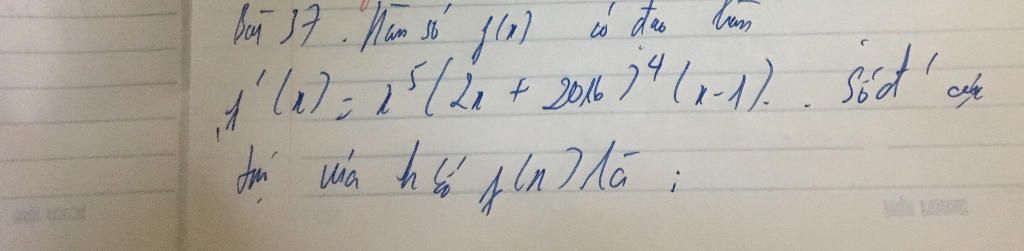 Bài 37. Hàm số f(x) có đạo hàm
f'(x) = x⁵(2x + 2016)⁴(x-1). Số đ' cực
trị của h số f(x) là :